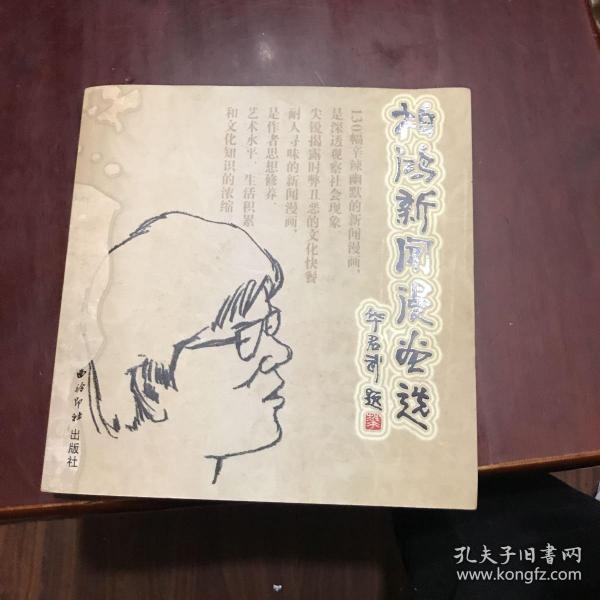 柏鸿新闻漫画选
华君武题
130幅辛辣幽默的新闻漫画，
是深透观察社会现象、
尖锐揭露时弊丑恶的文化快餐
耐人寻味的新闻漫画，
是作者思想修养、
艺术水平、生活积累
和文化知识的浓缩
西泠印社
出版社
孔夫子旧书网
www.kongfz.com